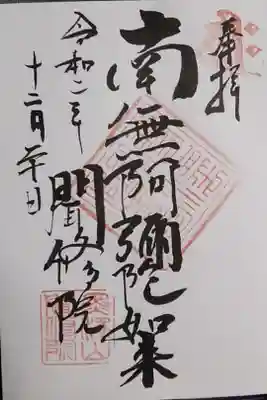 奉拝
南無阿彌陀如来
聞修院
令和二年
十二月二十日